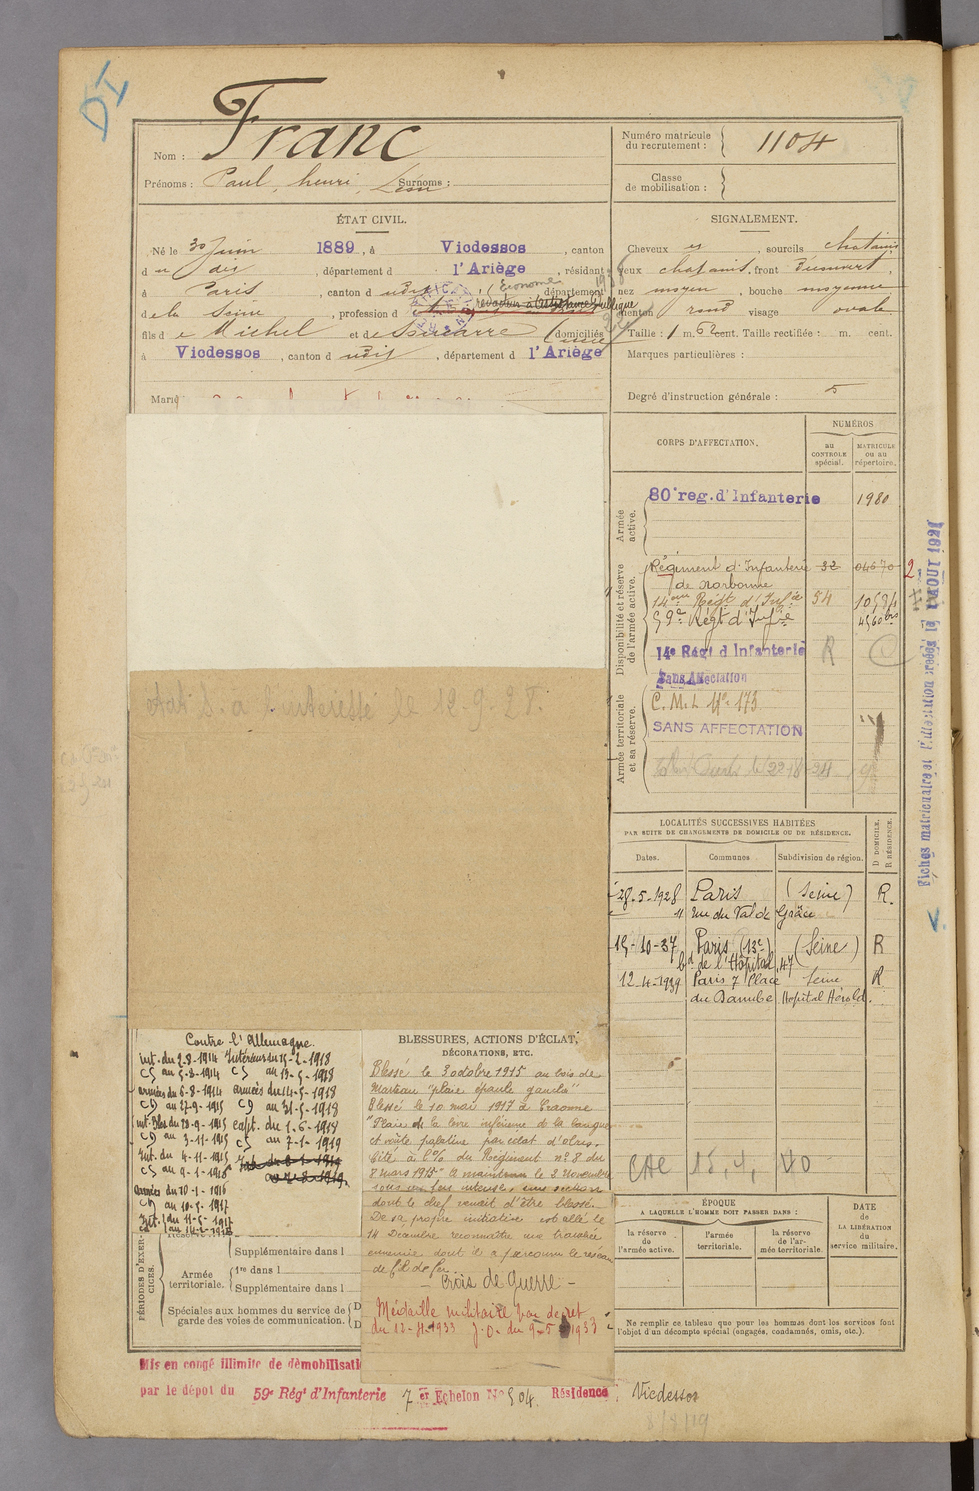 DI
Nom : Franc
Prénoms : Paul, henri, Léon Surnoms :
Numéro matricule
du recrutement : 1104
Classe
de mobilisation :
ÉTAT CIVIL.
Né le 30 Juin 1889, à Vicdessos, canton
d u dit, département d l'Ariège, résidant
à Paris, canton d udit, département
Econome
de la Seine, profession d
fils d e Michel et de domiciliés
à Vicdessos, canton d udit, département d l'Ariège
Marié
SIGNALEMENT.
Cheveux , sourcils chatains
yeux chatains, front découvert,
nez moyen, bouche moyenne
menton rond visage ovale
Taille : 1 m. 62 cent. Taille rectifiée : m. cent.
Marques particulières :
Degré d'instruction générale : 5
CORPS D'AFFECTATION.
NUMÉROS
au
CONTROLE
spécial.
MATRICULE
ou au
répertoire.
Armée
active.
80e reg. d'Infanterie 1980
Disponibilité et réserve
de l'armée active.
Régiment d'Infanterie 32 04670
de Narbonne
14eme Régt d'Infie 54
59e Régt d'Infie
14e Régt d'Infanterie R
Sans Affectation
Armée territoriale
et sa réserve.
C.M.
173
SANS AFFECTATION
Act S. a l'interessé le 12-9-2
LOCALITÉS SUCCESSIVES HABITÉES
PAR SUITE DE CHANGEMENTS DE DOMICILE OU DE RÉSIDENCE.
Dates.
Communes
Subdivision de région.
D DOMICILE.
R RÉSIDENCE.
28-5-1928 Paris (Seine) R.
rue du Val de Grâce
15-10-37 Paris (13e) (Seine) R
bd de l'Hôpital, 47
12-4-1939 Paris 7 Place Seine R
du Danube Hopital Hérold.
Fiches matriculaire et d'affectation créées le AOUT 192
Contre l'Allemagne.
Int. du 2-8-1914
CS au 5-8-1914
armées du 6-8-1914
CD au 27-9-1915
Int. Bles. du 28-9-1915
CD au 3-11-1915
Int. du 4-11-1915
CS au 9-1-1916
armées du 10-1-1916
CD au 10-5-1917
Int. du 11-5-1917
Intérieur du 15-2-1918
CS au 13-5-1918
armées du 14-5-1918
CD au 31-5-1918
capt. du 1-6-1918
CS au 7-1-1919
BLESSURES, ACTIONS D'ÉCLAT,
DÉCORATIONS, ETC.
Blessé le 2 octobre 1915 au bois de
Marteau "plaie épaule gauche"
Blessé le 10 mai 1917 à Craonne
"Plaie de la lèvre inférieure de la langue
et voûte palatine par éclat d'obus.
Cité à l'O/ du Régiment n°8 du
8 mars 1915 "a maintenu le 2 Novembre
sous un feu intense, une section
dont le chef venait d'être blessé.
De sa propre initiative est allé le
14 Décembre reconnaître une tranchée
ennemie dont il a parcouru le réseau
de fil de fer.
- Croix de Guerre -
Médaille militaire par decret
du J.O. du 9-5 1933
PÉRIODES D'EXER-
CICES.
Supplémentaire dans l
Armée
territoriale.
1re dans l
Supplémentaire dans l
Spéciales aux hommes du service de
garde des voies de communication.
D
D
ÉPOQUE
A LAQUELLE L'HOMME DOIT PASSER DANS :
la réserve
de
l'armée active.
l'armée
territoriale.
la réserve
de l'ar-
mée territoriale.
DATE
de
LA LIBÉRATION
du
service militaire.
Ne remplir ce tableau que pour les hommes dont les services font
l'objet d'un décompte spécial (engagés, condamnés, omis, etc.).
Mis en congé illimité de démobilisati
par le dépôt du 59e Régt d'Infanterie 7 er Echelon N° 504 Résidence : Vicdessos
8/8/19